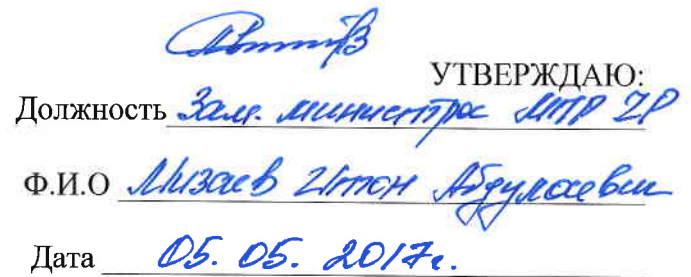 УТВЕРЖДАЮ:
Должность Зам. министра МТР ЧР
Ф.И.О Мизаев Абдулаевич
Дата 05.05.2017г.